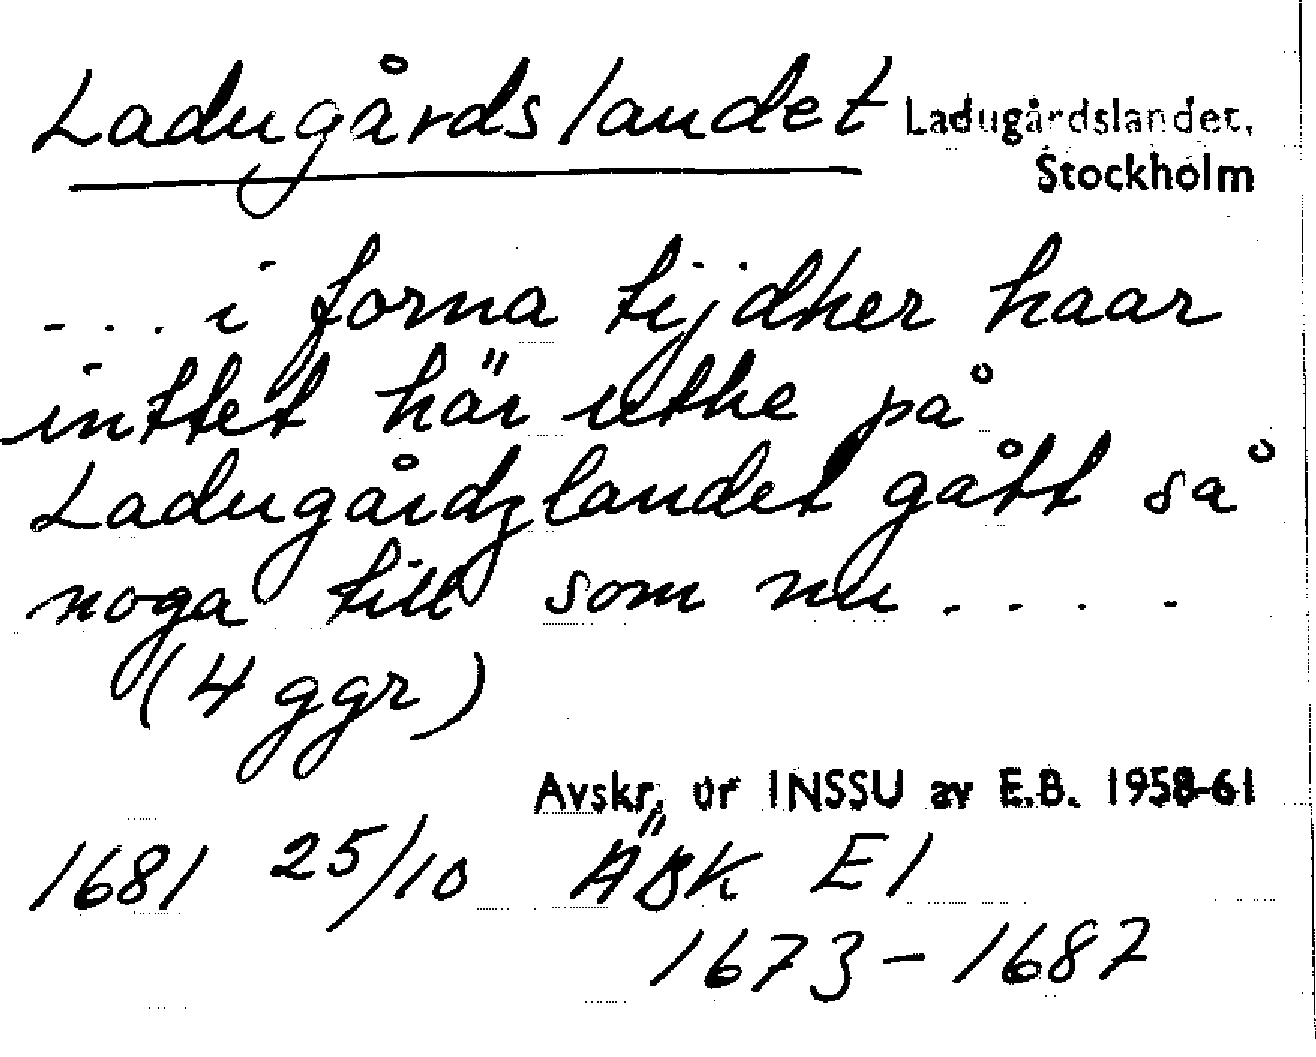 Ladugårdslandet Ladugårdslandet,
Stockholm
... i forna tijdher haar
inttet här uthe på
Ladugårdzlandet gått så
noga till som nu ....
(4 ggr)
Avskr. ur INSSU av E.B. 1958-61
1681 25/10 ÄBK E1
1673-1687